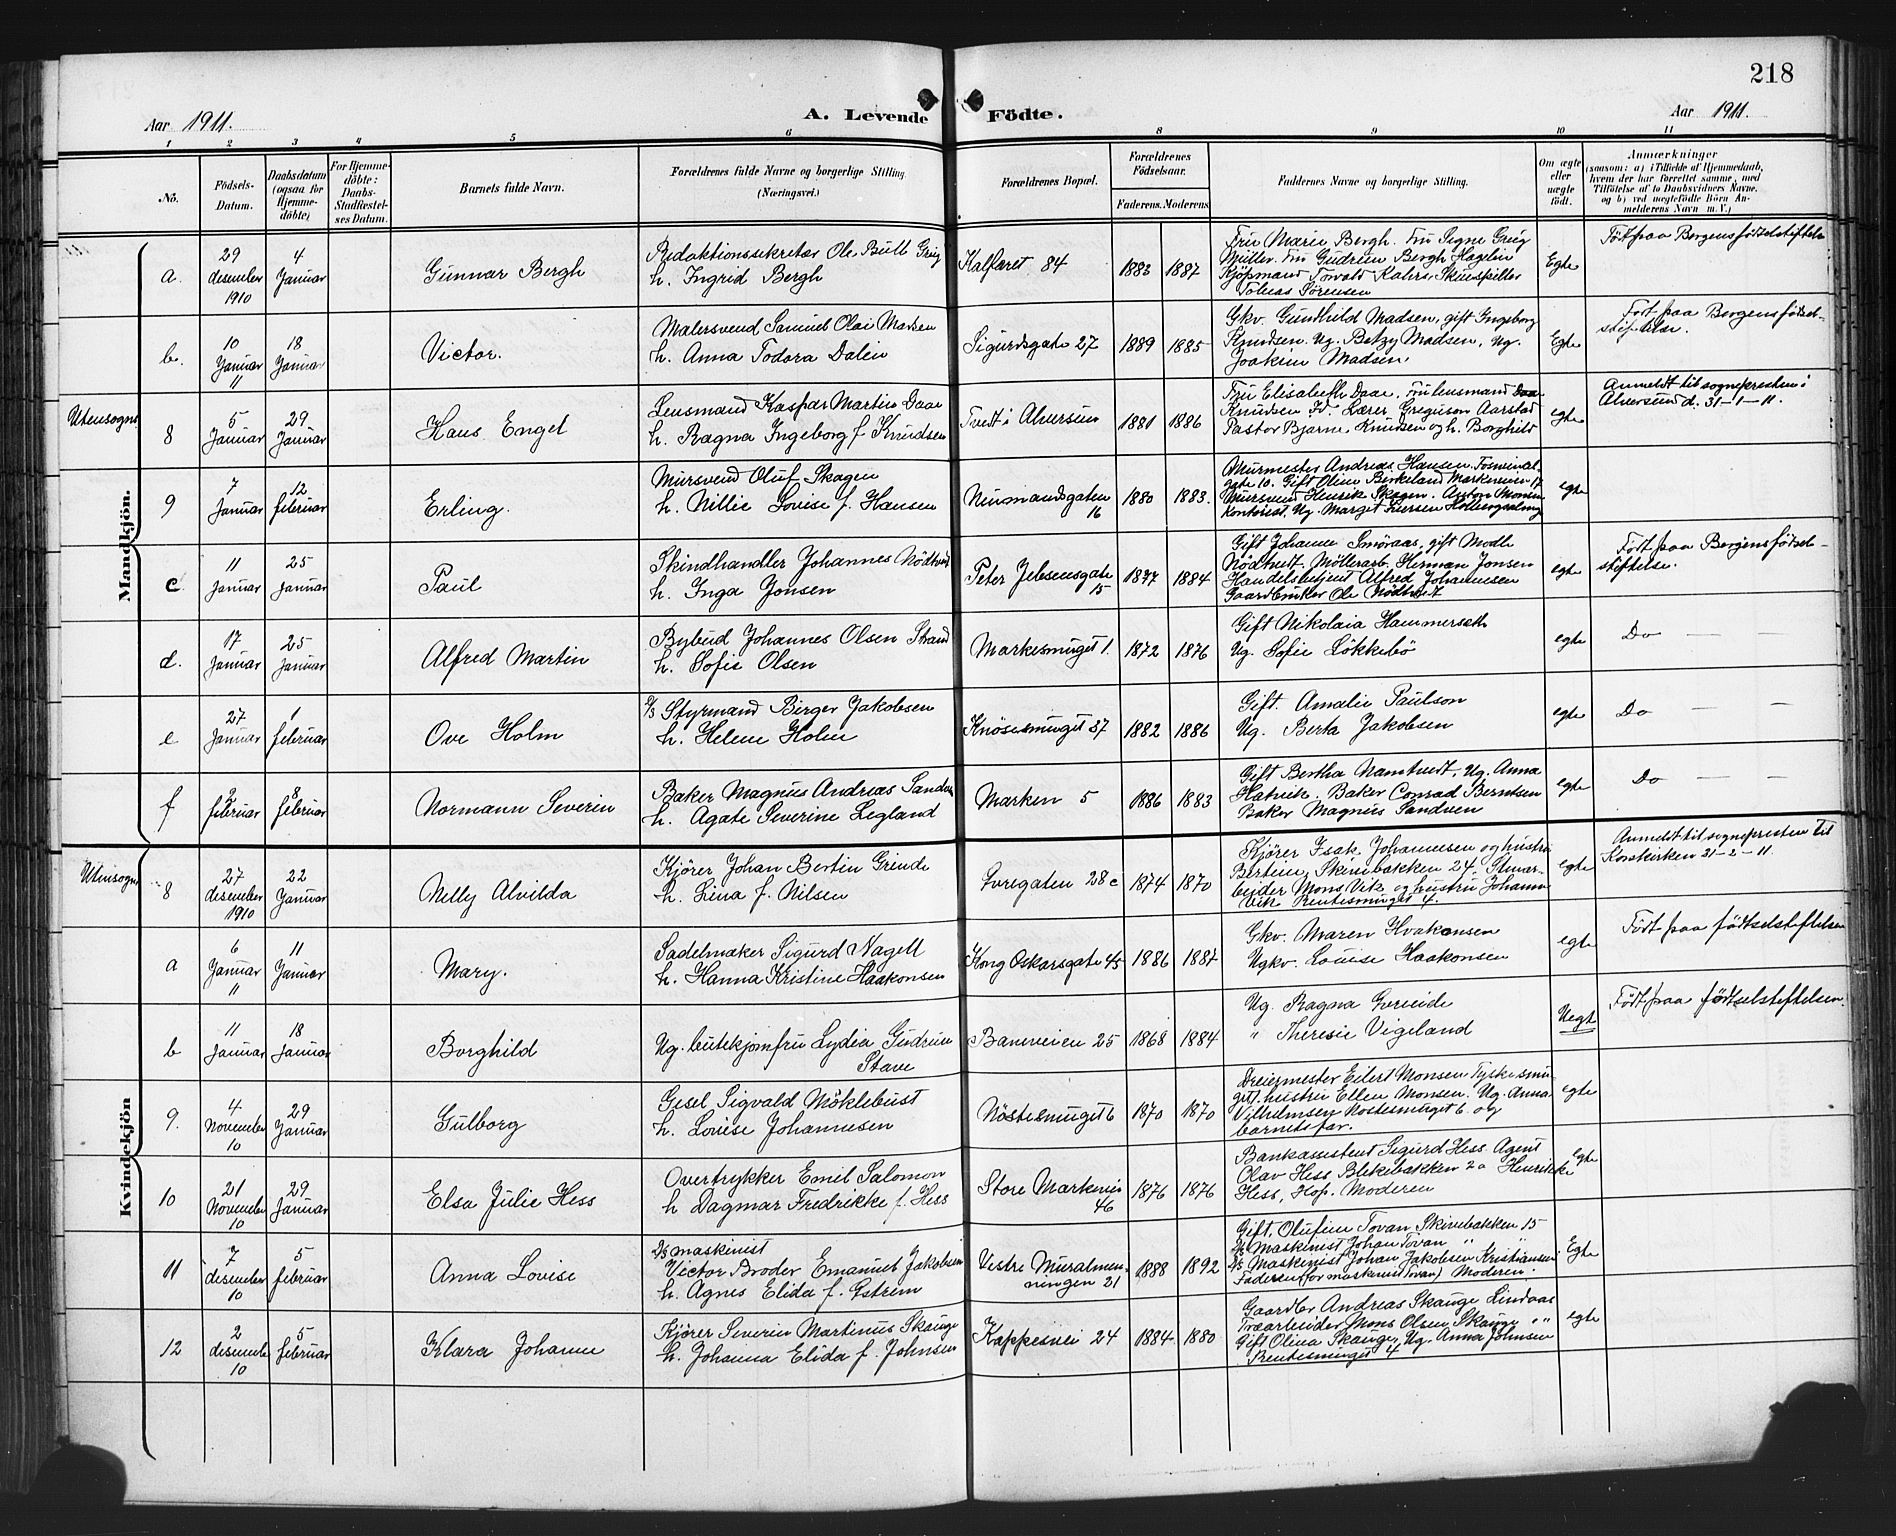 218
Aar 1911.
A. Levende Födte.
Aar 1911.
1 2 3 4 5 6 8 9 10 11
No.
Födsels-Datum.
Daabsdatum (ogsaa for Hjemme-döbte)
For Hjemme-döbte: Daabs-Stadfæstelses Datum.
Barnets fulde Navn.
Forældrenes fulde Navne og borgerlige Stilling (Næringsvei.)
Forældrenes Bopæl.
Forældrenes Födselsaar.
Faderens. Moderens.
Faddernes Navne og borgerlige Stilling.
Om ægte eller uægte födt.
Anmærkninger
(saasom: a) i Tilfælde af Hjemmedaab, hvem der har forrettet samme, med Tilföielse af to Daabsvidners Navne, og b) ved uægtefödte Börn Anmelderens Navn m. V.)
Mandkjön.
a. 29 desember 1910 4 Januar Gunnar Bergh
Redaktionssekretær Ole Bull Grieg
h. Ingrid Bergh
Kalfaret 84 1883 1887
Fru Marie Bergh. Fru Signe Grieg
Müller. Fru Gudrun Bergh Hagelin
Kjöpmand Torvald Skuespiller
Tobias Sörensen
Egte
Födt paa Bergens födselsstiftelse
b. 10 Januar 11 18 Januar Victor.
Malersvend Samuel Olai Madsen
h. Anna Todora Dalen
Sigurdsgate 27 1889 1885
Gkv. Gunhild Madsen, gift Ingeborg
Knudsen. Ug. Betzy Madsen, Ug.
Joakim Madsen
Egte
Födt paa Bergens födsel-
stiftelse.
Utensogns
8 5 Januar 29 Januar Hans Engel
Lensmand Kaspar Martin Daae
h. Ragna Ingeborg f. Knudsen
Tvedt i Alversun 1881 1886
Fru Elisabeth Daae. Fru lensmand Daae
Knudsen Lærer Gregerson Aarstad
Pastor Bjarne Knudsen og h. Borghild
egte
Anmeldt til sognepresten i
Alversund d. 31-1-11.
9 7 Januar 12 februar Erling.
Mursvend Oluf Skagen
h. Nillie Louise f. Hansen
Neumandsgaten 16 1880 1883.
Murmester Andreas Hansen.
gate 10. Gift Oline Birkeland Markeveien 17
Mursvend Henrik Skagen. Anton Monsen
kontorist. Ug. Margit Iversen
egte
c. 11 Januar 25 Januar Paul
Skindhandler Johannes Nödtvedt
h. Inga Jonsen
Peter Jebsensgate 15 1877 1884
Gift Johanne Smöraas, gift Modli
Nödtvedt. Möllerarb. Herman Jonsen
Handelsbetjent Alfred Johannesen
Gaardbruker Ole Nödtvedt
egte
Födt paa Bergens födsel-
stiftelse.
d. 17 Januar 25 Januar Alfred Martin
Bybud Johannes Olsen Strand
h. Sofie Olsen
Markesmuget 1. 1872 1876
Gift Nikolaia Hammerseth
Ug. Sofie Lökkebö
egte
Do — —
e 27 Januar 1 februar Ove Holm
D/S Styrmand Birger Jakobsen
h. Helene Holm
Knösesmuget 37 1882 1886
Gift. Amalie Paulson
Ug. Berta Jakobsen
egte
Do — —
f 2 februar 8 februar Normann Severin
Baker Magnus Andreas Sandven
h. Agate Severine Legland
Marken 5 1886 1883
Gift Bertha Namtvedt, Ug. Anna
Hatvik. Baker Conrad Berntsen
Baker Magnus Sandven
egte
Do — —
Kvindekjön
Utensogns
8 27 desember 1910 22 Januar Nelly Alvilda
Kjörer Johan Bertin Grinde
h. Lina f. Nilsen
Övregaten 28c 1874 1870
Kjörer Isak Johannesen og hustru
Bertine, Skivebakken 24. Stuar-
beider Mons Vik og hustru Johanne
Vik Rentesmuget 4.
egte
Anmeldt til sognepresten til
Korskirken 31-2-11.
a 6 Januar 11 11 Januar Mary.
Sadelmaker Sigurd Nagell
h. Hanna Kristine Haakonsen
Kong Oskarsgate 45 1886 1887
Gkv. Maren Hvakonsen
Ugkv. Louise Haakonsen
egte
Födt paa födselsstiftelsen
b 11 Januar 18 Januar Borghild
Ug. butikjomfru Lydia Gudrun
Stave
Baneveien 25 1868 1884
Ug. Ragna Övreeide
" Theresie Vigeland
Uegt
Födt paa födselsstiftelsen.
9. 4 November 10 29 Januar Gulborg
Gesel Sigvald Möklebust
h. Louise Johannesen
Nöstesmuget 6 1870 1870
Dreiermester Eilert Monsen Tyskesmu-
get, hustru Ellen Monsen. Ug. Anna
Vilhelmsen Nostesmuget 6. og
barnets far.
egte
10 21 November 10 29 Januar Elsa Julie Hess
Overtrykker Emil Salomon
h Dagmar Fredrikke f. Hess
Store Markevei 46 1876 1876
Bankassistent Sigurd Hess. Agent
Olav Hess Blekebakken 2a Henrikke
Hess, Hop. Moderen
egte
11 7 desember 10 5 februar Anna Lovise
D/S maskinist
Victor Broder Emanuel Jakobsen
h. Agnes Elida f. Östrem
Vestre Muralmen-
ningen 21 1888 1892
Gift. Olufine Tovan Skivebakken 15
D/S Maskinist Johan Tovan " "
D/S Maskinist Johan Jakobsen Kristiansen
Faderen (for maskinist Tovan) Moderen.
Egte
12 2 desember 10 5 februar Klara Johanne
Kjörer Severin Martinus Skauge
h. Johanna Elida f. Johnsen
Kappesvei 24 1884 1880
Gaardbr Andreas Skauge Lindaas
Træarbeider Mons Olsen Skauge " "
Gift Olina Skauge, Ug. Anna Johnsen
Rentesmuget 4
egte